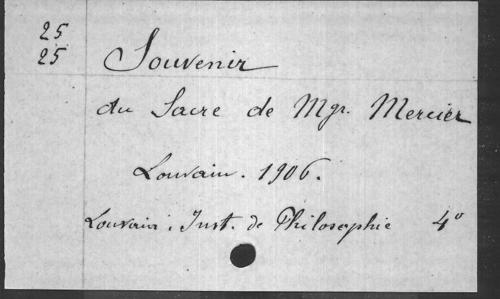 25
25
Souvenir
du Sacre de Mgr. Mercier
Louvain. 1906.
Louvain. Inst. de Philosophie 4°